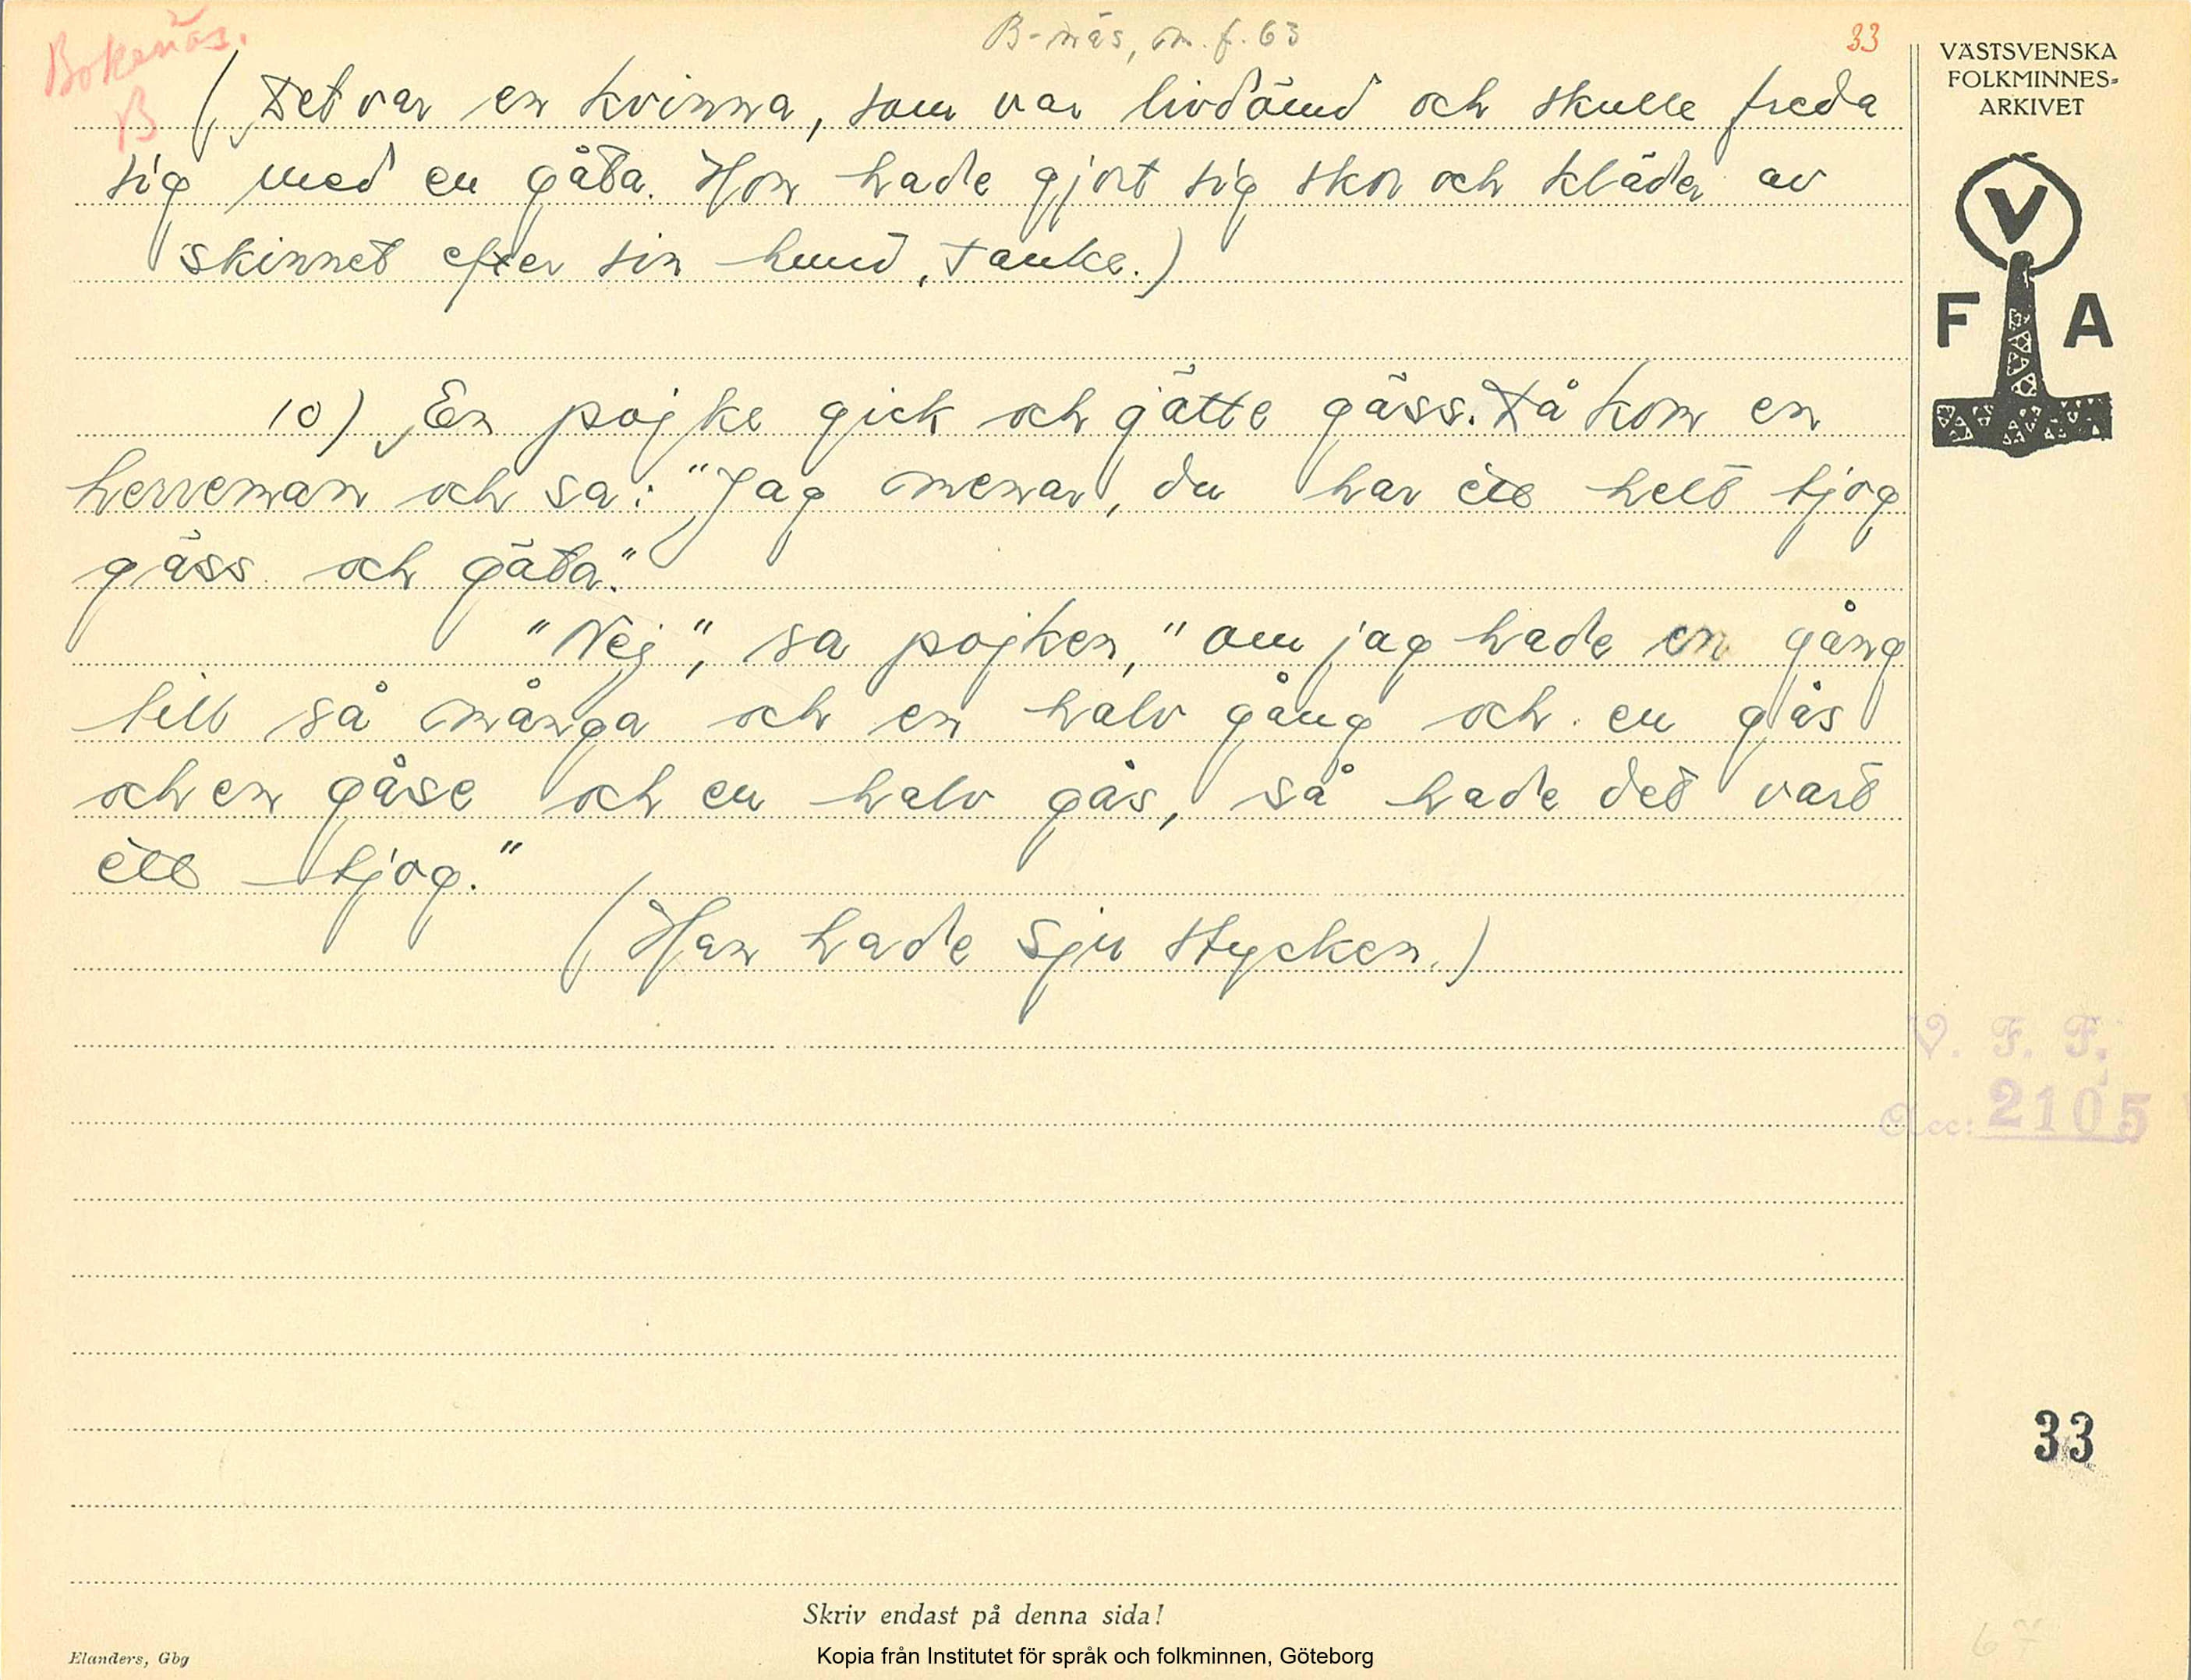 Bokenäs.
B
B-näs, m. f. 63
33
(Det var en kvinna, som var livdömd och skulle freda
sig med en gåta. Hon hade gjort sig skor och kläder av
skinnet efter sin hund, Tanke.)
10) En pojke gick och gätte gäss. Då kom en
herreman och sa: "Jag menar, du har ett helt tjog
gäss och gäta."
"Nej", sa pojken, "om jag hade en gång
till så många och en halv gång och en gås
och en gåse och en halv gås, så hade det vart
ett tjog."
(Han hade sju stycken.)
VÄSTSVENSKA
FOLKMINNES-
ARKIVET
V
F A
V. F. F.
Acc: 2105
33
67
Skriv endast på denna sida!
Elanders, Gbg
Kopia från Institutet för språk och folkminnen, Göteborg